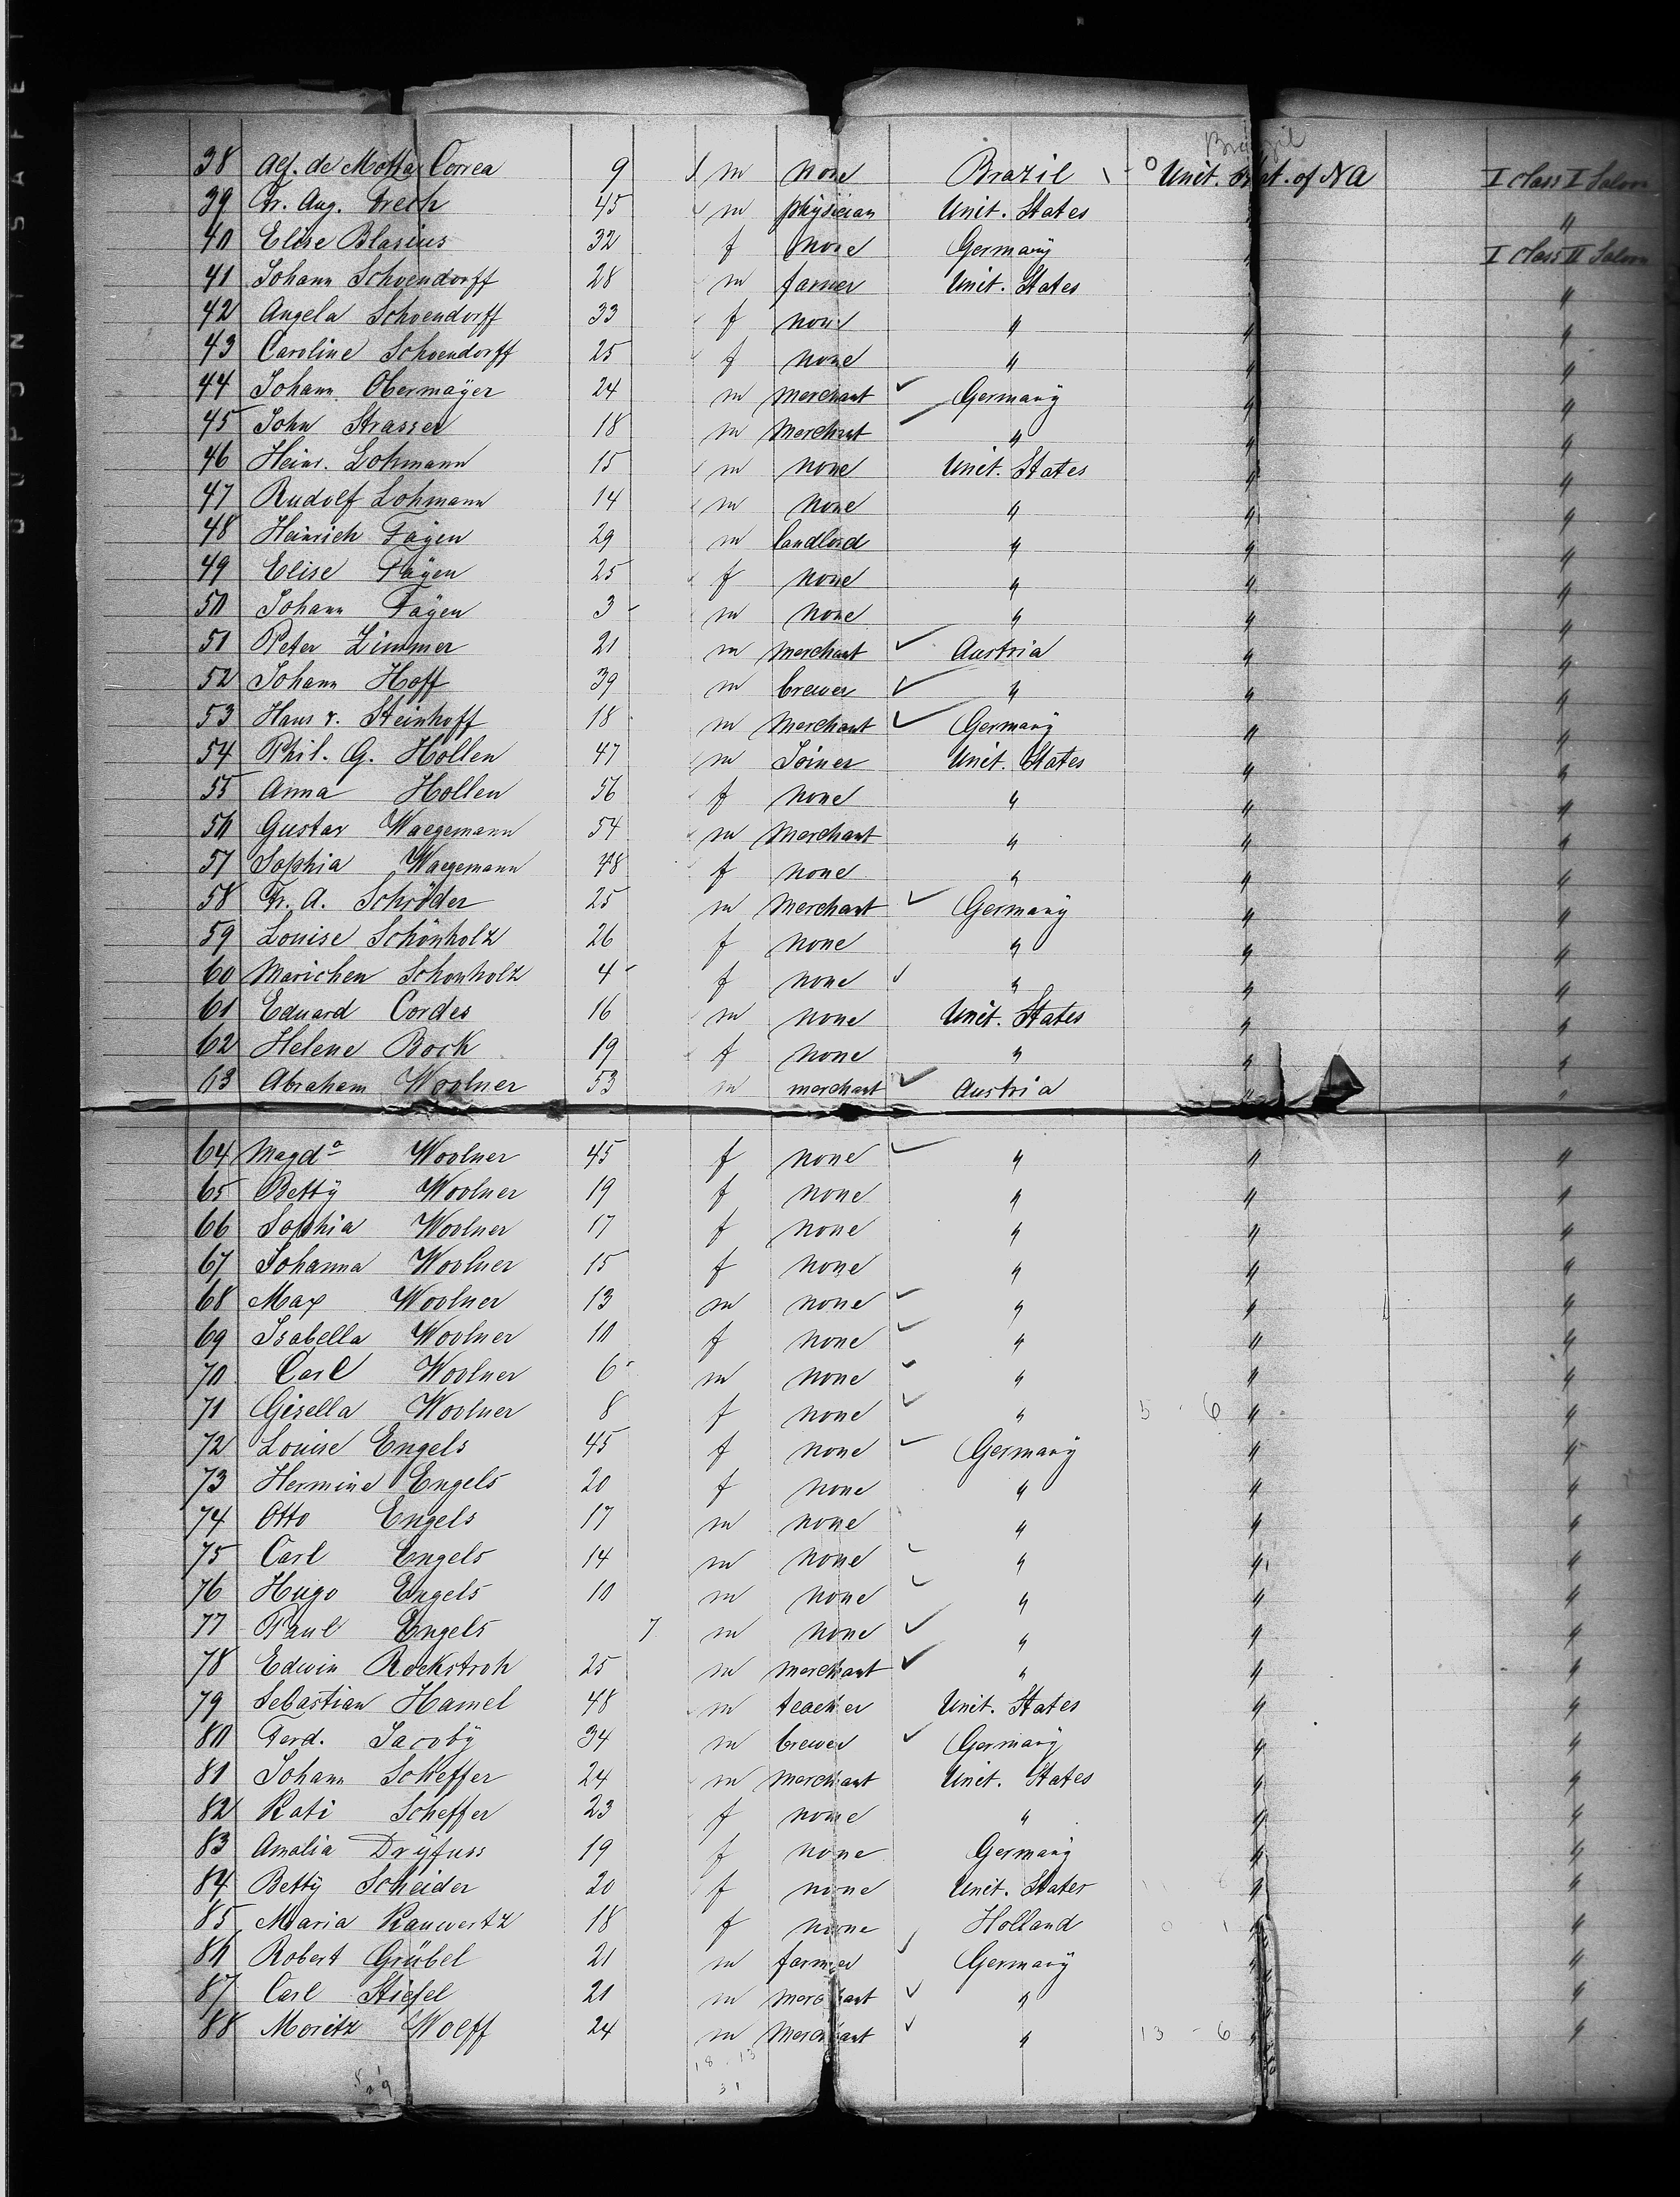 Brazil
38 Alf. de Motta Correa 9 m none Brazil Unit. Stat. of NA I class I Saloon
39 Fr. Aug. Frech 45 m physician Unit. States "
40 Elise Blasius 32 f none Germany " I class II Saloon
41 Johann Schoendorff 28 m farmer Unit. States "
42 Angela Schoendorff 33 f none " " "
43 Caroline Schoendorff 25 f none " " "
44 Johann Obermayer 24 m merchant Germany " "
45 John Strasser 18 m merchant " " "
46 Heinr. Lohmann 15 m none Unit. States " "
47 Rudolf Lohmann 14 m none " " "
48 Heinrich Fayen 29 m landlord " " "
49 Elise Fayen 25 f none " " "
50 Johann Fayen 3 m none " " "
51 Peter Zimmer 21 m merchant Austria " "
52 Johann Hoff 39 m brewer " " "
53 Hans v. Steinhoff 18 m merchant Germany " "
54 Phil. G. Hollen 47 m Joiner Unit. States " "
55 Anna Hollen 56 f none " " "
56 Gustav Waegemann 54 m merchant " " "
57 Sophia Waegemann 48 f none " " "
58 Fr. A. Schröder 25 m merchant Germany " "
59 Louise Schönholz 26 f none " " "
60 Marichen Schonholz 4 f none " " "
61 Eduard Cordes 16 m none Unit. States " "
62 Helene Bock 19 f none " " "
63 Abraham Woolner 53 m merchant Austria " "
64 Magda Woolner 45 f none " " "
65 Betty Woolner 19 f none " " "
66 Sophia Woolner 17 f none " " "
67 Johanna Woolner 15 f none " " "
68 Max Woolner 13 m none " " "
69 Isabella Woolner 10 f none " " "
70 Carl Woolner 6 m none " " "
71 Gisella Woolner 8 f none " 5 - 6 " "
72 Louise Engels 45 f none Germany " "
73 Hermine Engels 20 f none " " "
74 Otto Engels 17 m none " " "
75 Carl Engels 14 m none " " "
76 Hugo Engels 10 m none " " "
77 Paul Engels 7 m none " " "
78 Edwin Rockstroh 25 m merchant " " "
79 Sebastian Hamel 48 m teacher Unit. States " "
80 Ferd. Jacoby 34 m brewer Germany " "
81 Johann Scheffer 24 m merchant Unit. States " "
82 Kati Scheffer 23 f none " " "
83 Amalia Dryfuss 19 f none Germany " "
84 Betty Scheider 20 f none Unit. States " "
85 Maria Kauwertz 18 f none Holland 0 1 " "
86 Robert Grübel 21 m farmer Germany " "
87 Carl Stiefel 21 m merchant " " "
88 Moritz Wolff 24 m merchant " 13 - 6 " "
18 . 13
31